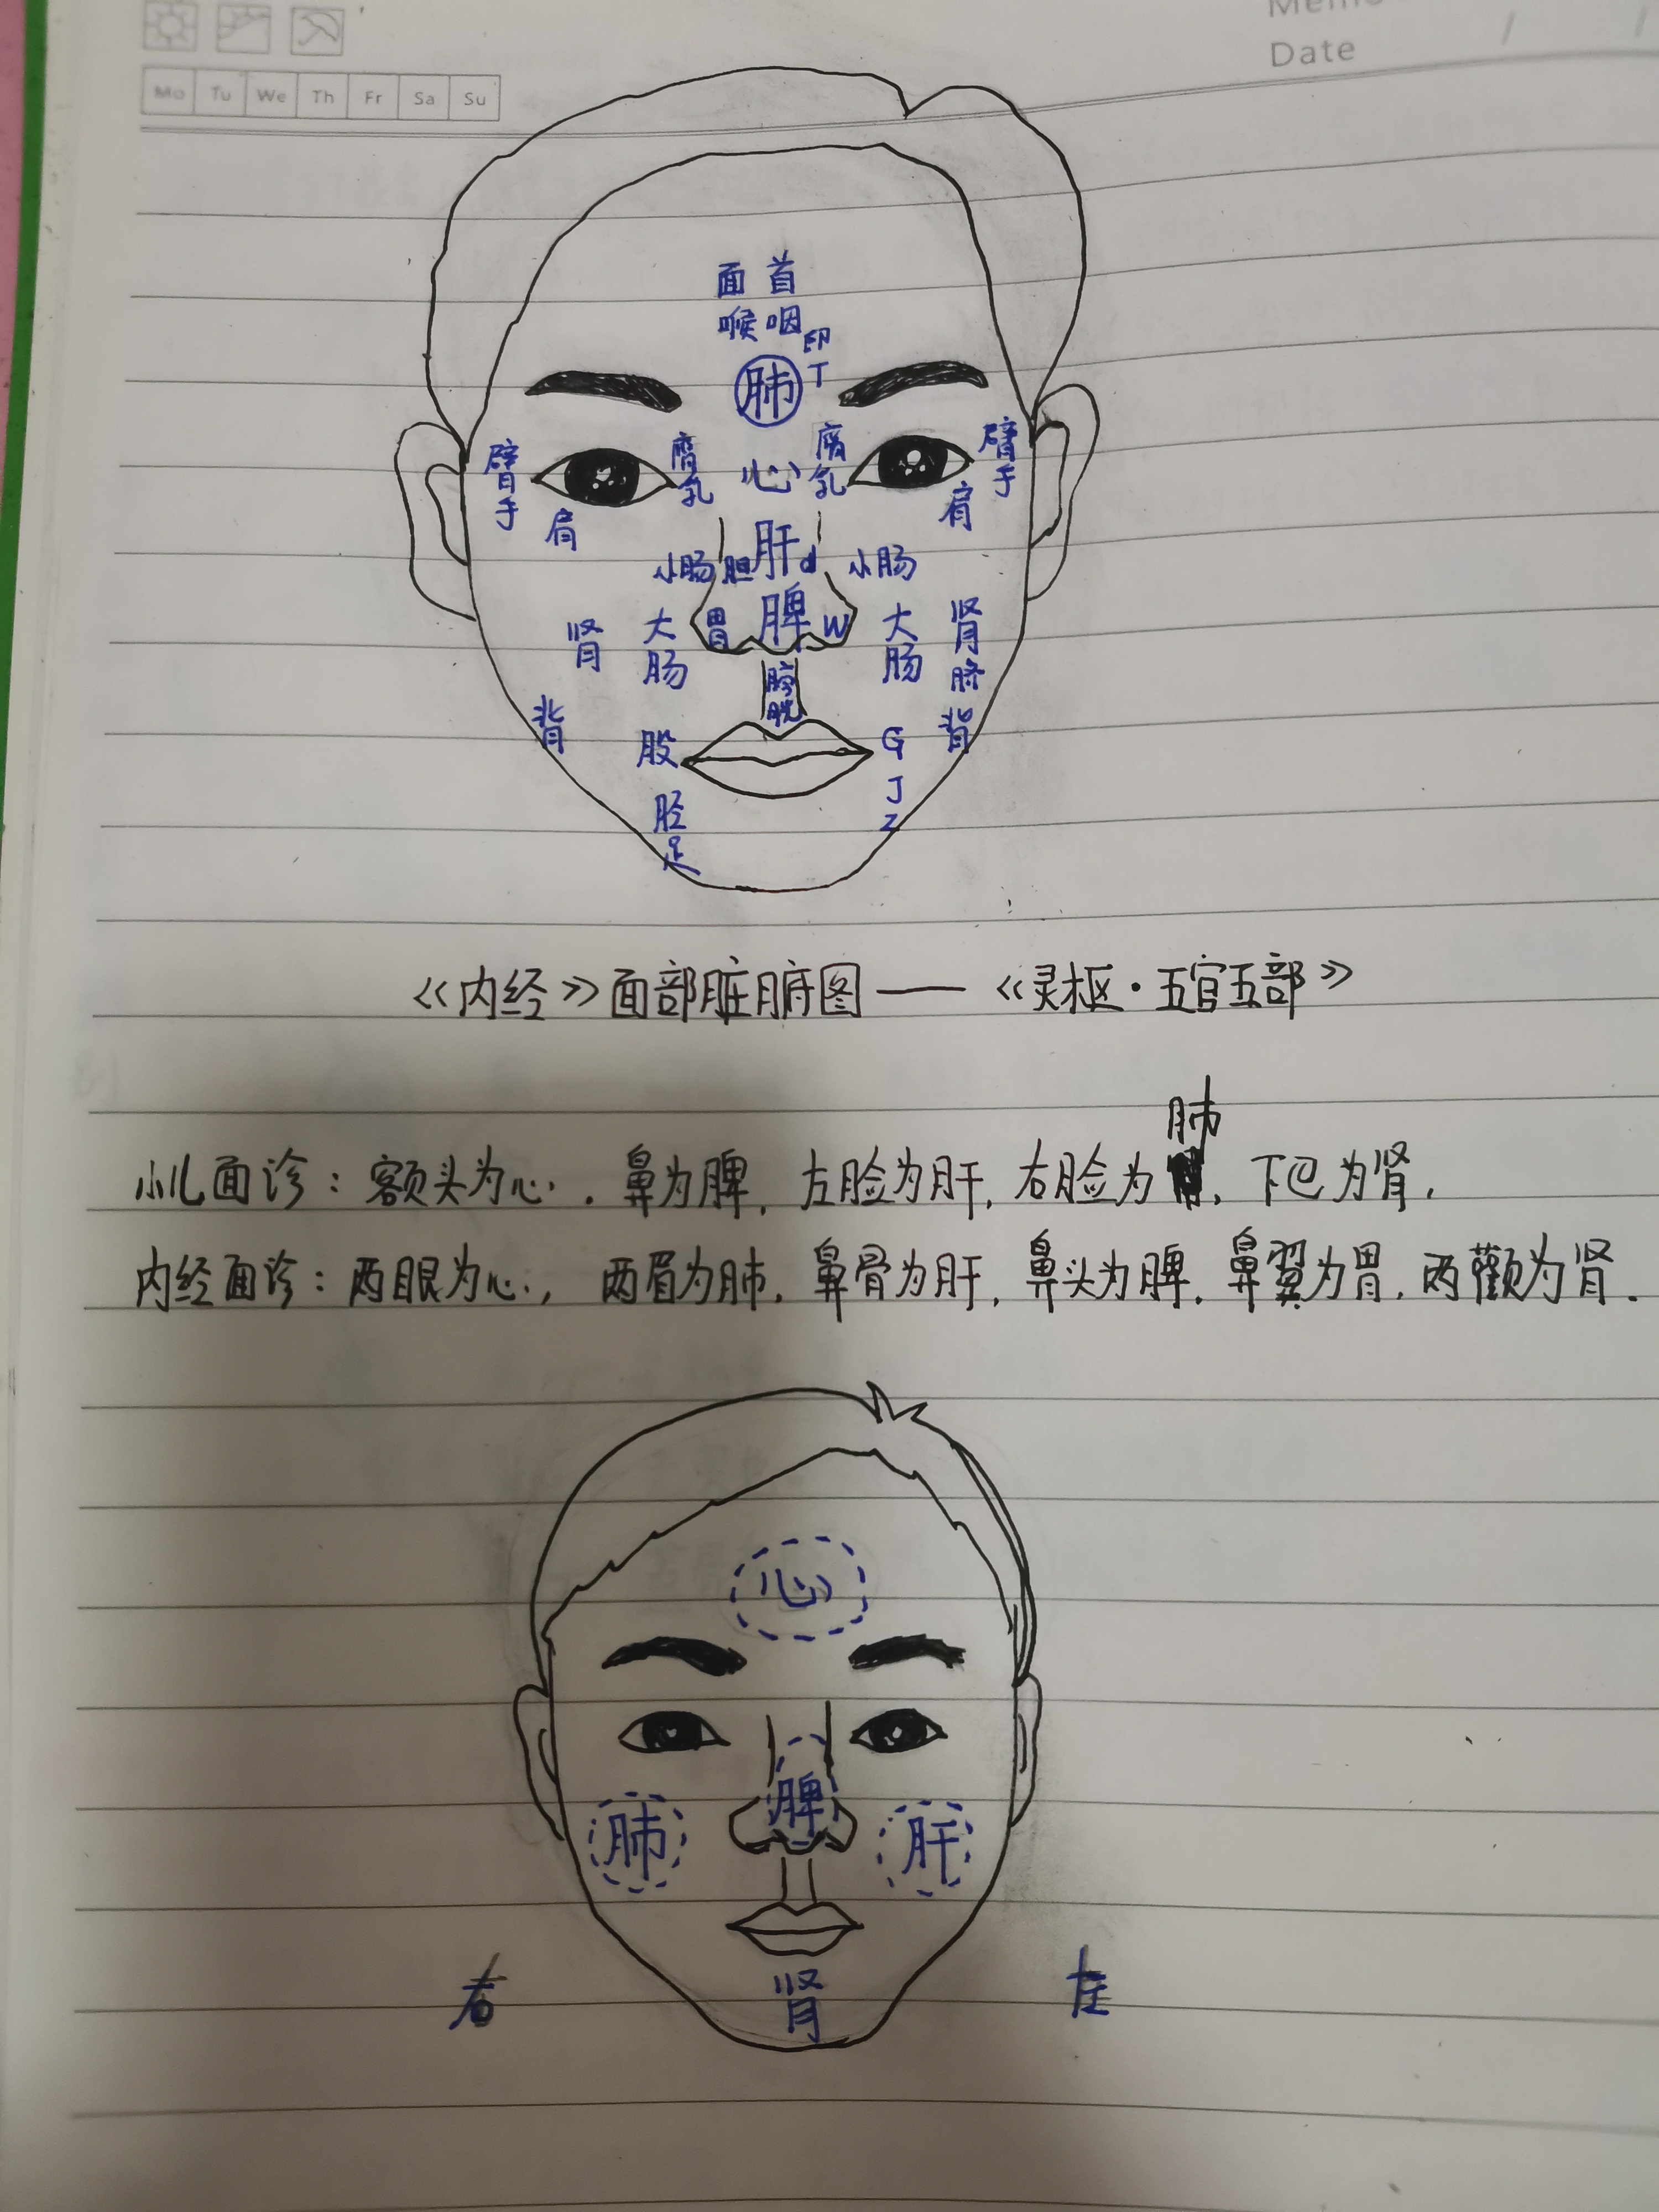 Memo
Date / /
Mo Tu We Th Fr Sa Su
面 首
喉 咽 印
肺 T
臂 手 膺 乳 心 膺 乳 臂 手
肩 肩
肝
小肠 胆 d 小肠
肾 大肠 胃 脾 W 大肠 肾 脐
背 股 G 背
胫 J
足 Z
《内经》面部脏腑图——《灵枢·五官五部》
肺
小儿面诊：额头为心．鼻为脾，左脸为肝，右脸为，下巴为肾．
内经面诊：两眼为心，两眉为肺，鼻骨为肝，鼻头为脾，鼻翼为胃，两颧为肾．
心
脾
肺 肝
右 左
肾